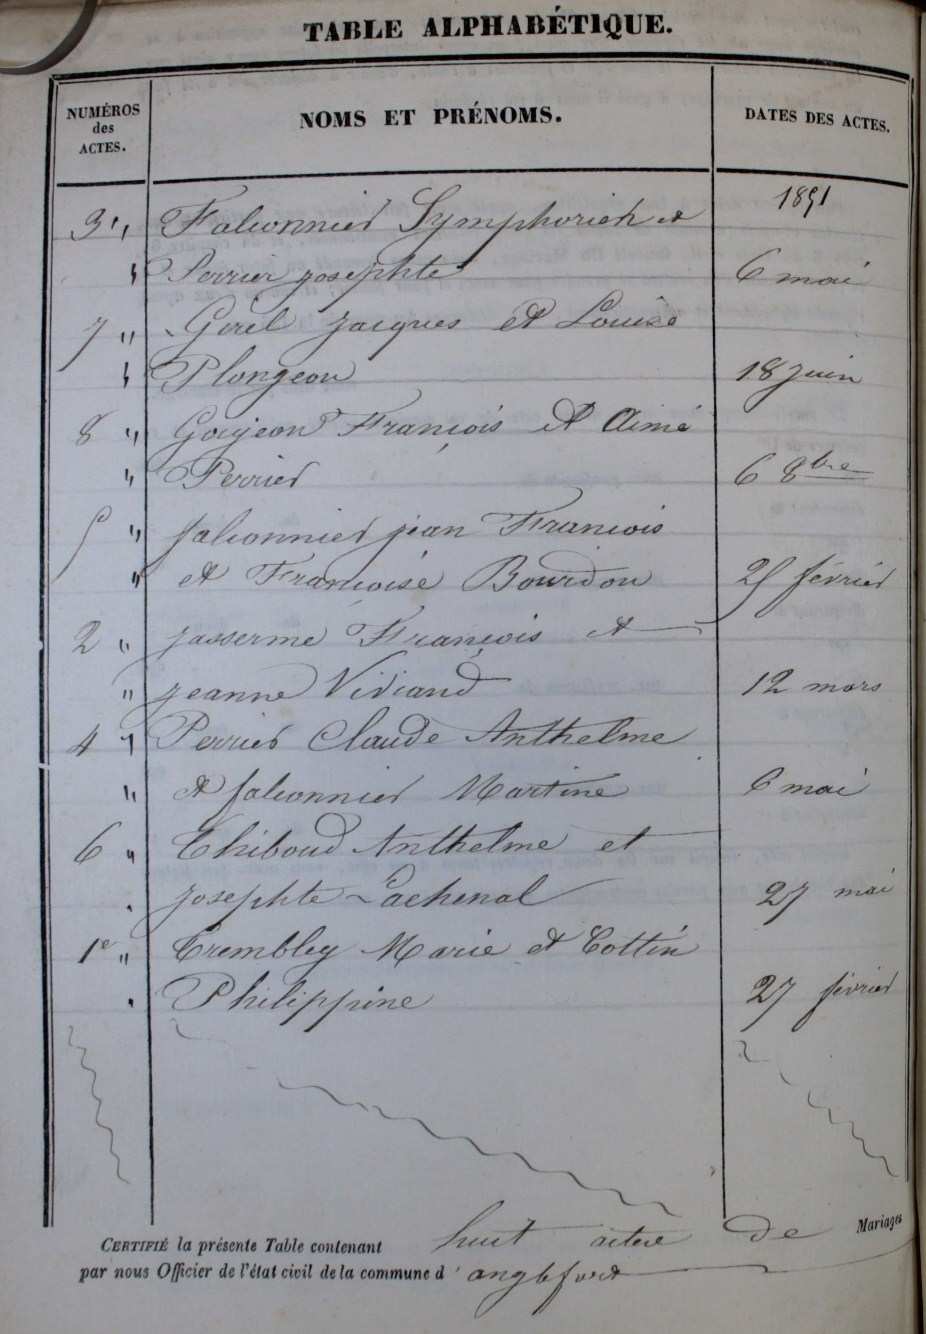 TABLE ALPHABÉTIQUE.
NUMÉROS des ACTES. NOMS ET PRÉNOMS. DATES DES ACTES.
1851
3 " Falconnier Symphorien et
" Perrier josephte 6 mai
7 " Girel Jacques et Louise
" Plongeon 18 juin
8 " Goujeon François et Aimé
" Perrier 6 8bre
5 " falconnier jean François
" et Françoise Bourdon 25 février
2 " Jasserme François et
" jeanne Viviand 12 mars
4 " Perrier Claude Anthelme
" et falconnier Martine 6 mai
6 " Thiboud Anthelme et
josephte Lachenal 27 mai
1e " Trembley Marie et Cottin
Philippine 27 février
CERTIFIÉ la présente Table contenant huit actes de Mariages
par nous Officier de l'état civil de la commune d'anglefort